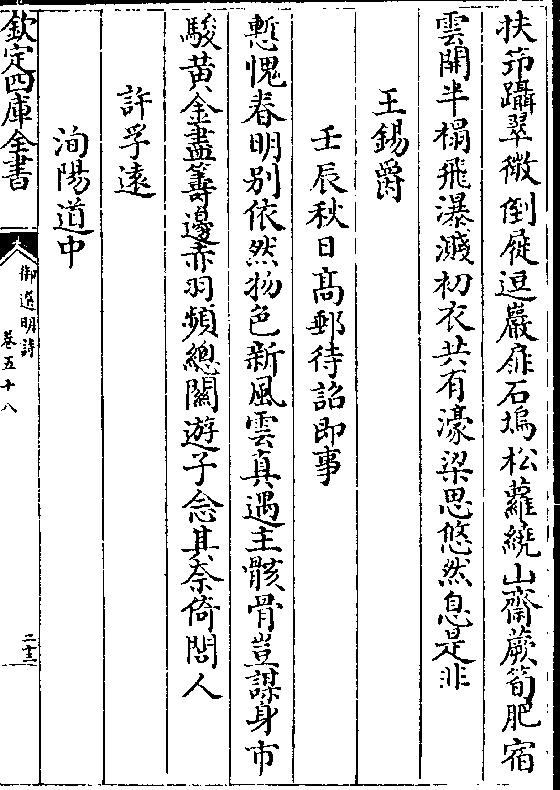 扶筇躡翠微倒屣逗巖扉石塢松蘿繞山齋蕨筍肥宿
雲開半榻飛瀑濺初衣共有濠梁思悠然息是非
王錫爵
壬辰秋日髙郵待詔即事
慙愧春明别依然物色新風雲真遇主骸骨豈謀身市
駿黄金盡籌邊赤羽頻總關遊子念其奈倚閭人
許孚遠
洵陽道中
欽定四庫全書
御選明詩
卷五十八
二十三